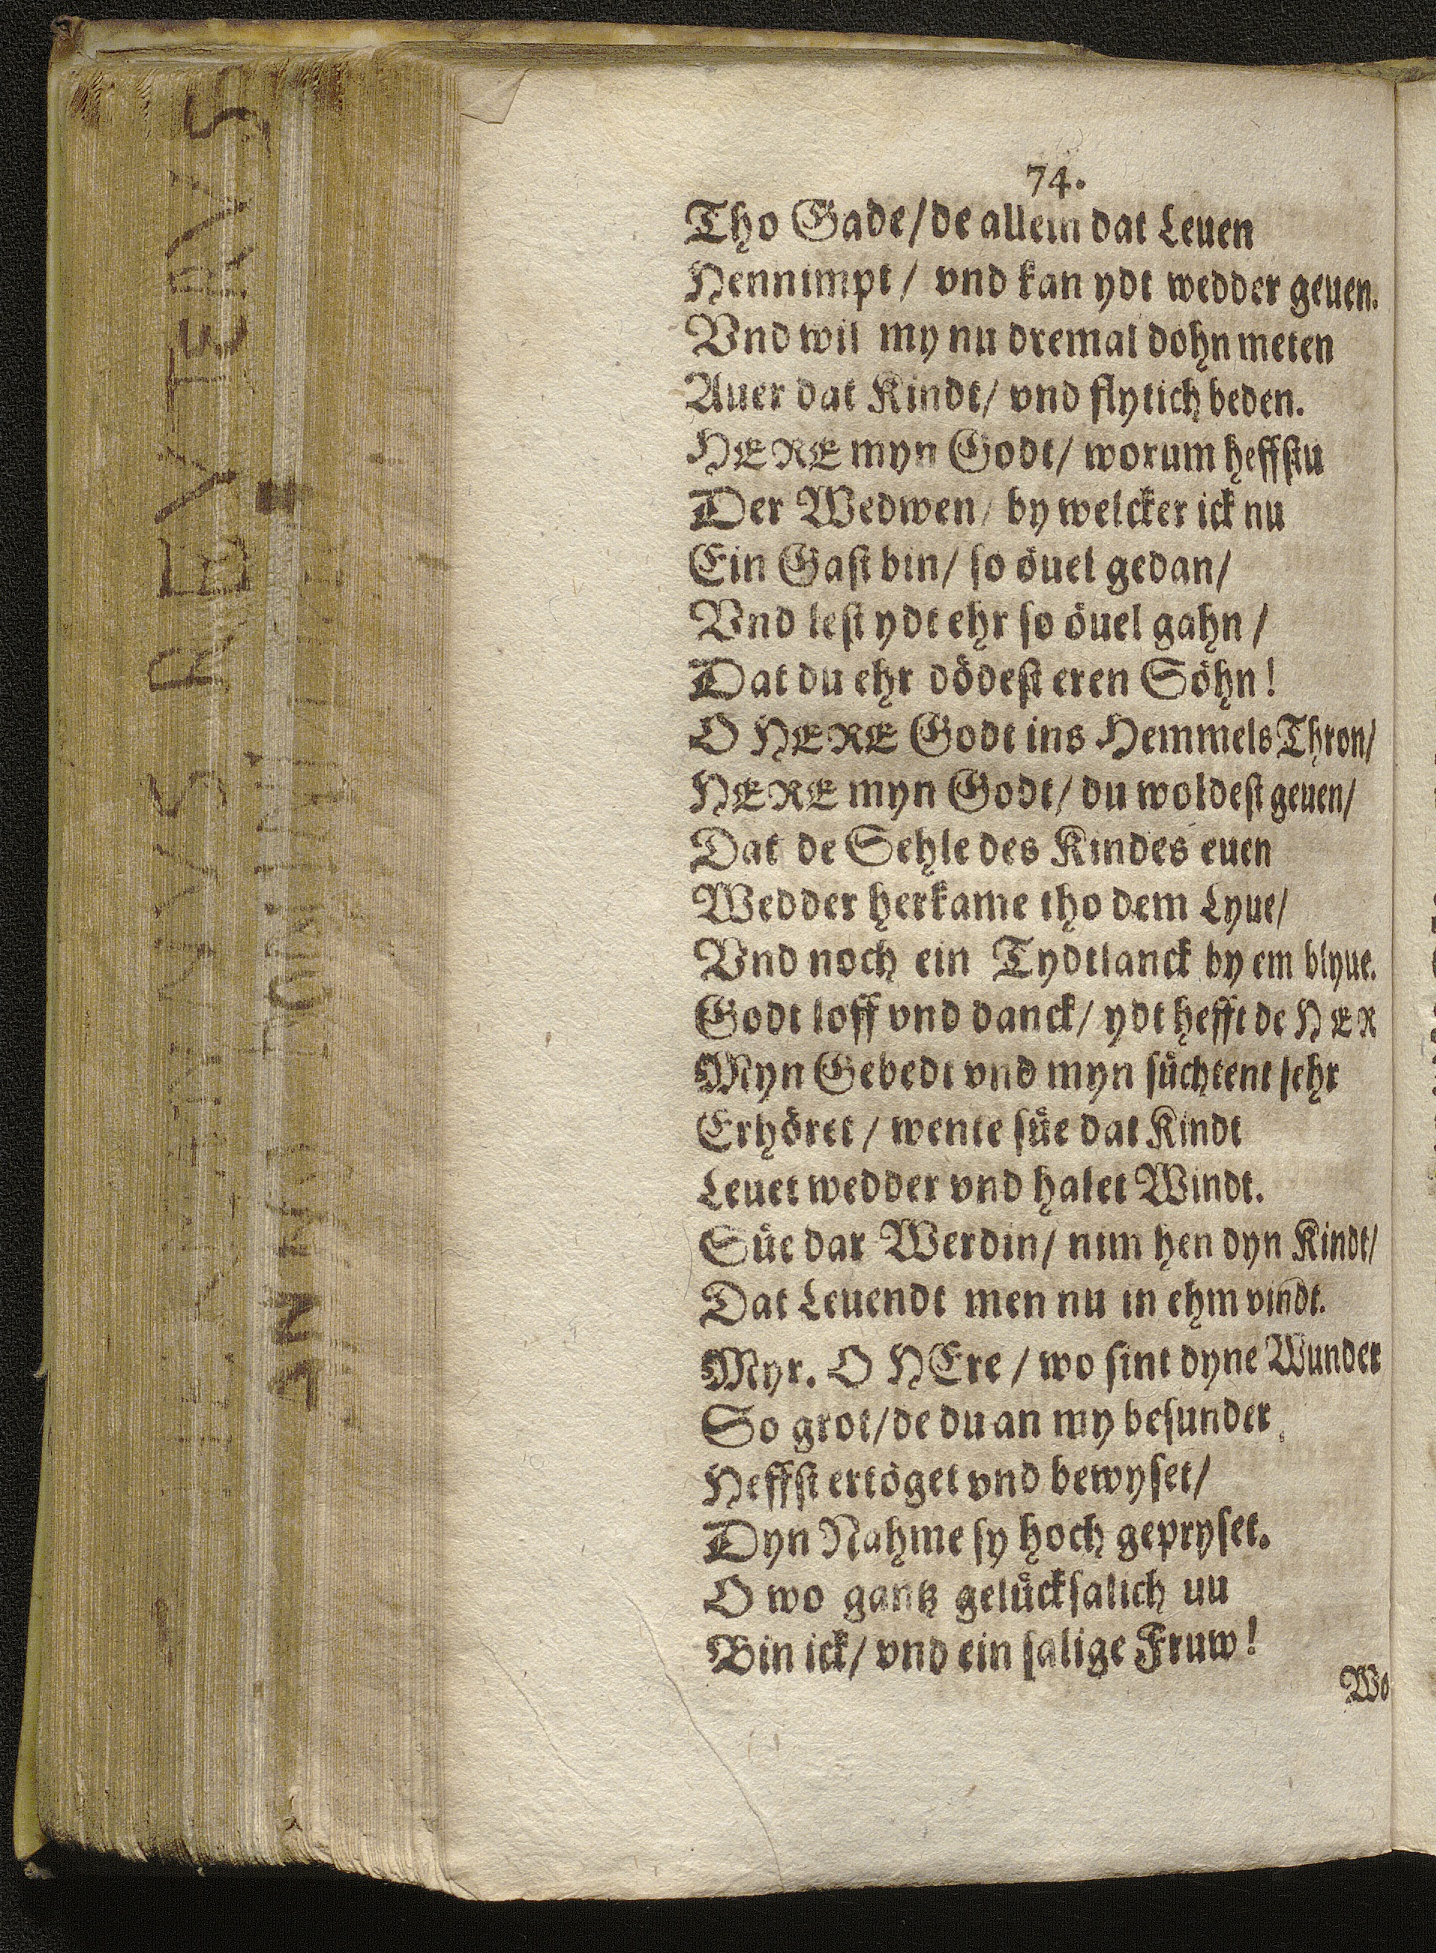 74.
Tho Gade/de allein dat Leuen
Hennimpt / vnd kan ydt wedder geuen.
Vnd wil my nu dremal dohn meten
Auer dat Kindt/ vnd flytich beden.
HERE myn Godt/ worum heffstu
Der Wedwen/ by welcker ick nu
Ein Gast bin/ so öuel gedan/
Vnd lest ydt ehr so öuel gahn /
Dat du ehr dödest eren Söhn!
O HERE Godt ins Hemmels Thron/
HERE myn Godt/ du woldest geuen/
Dat de Sehle des Kindes euen
Wedder herkame tho dem Lyue/
Vnd noch ein Tydtlanck by em blyue.
Godt loff vnd danck/ ydt hefft de HER
Myn Gebedt vnd myn süchtent sehr
Erhöret / wente süe dat Kindt
Leuet wedder vnd halet Windt.
Süe dar Werdin/ nim hen dyn Kindt/
Dat Leuendt men nu in ehm vindt.
Myr. O HEre / wo sint dyne Wunder
So grot/de du an my besunder
Heffst ertöget vnd bewyset/
Dyn Nahme sy hoch gepryset.
O wo gantz gelücksalich uu
Bin ick/ vnd ein salige Fruw!
Wo
REVTERVS